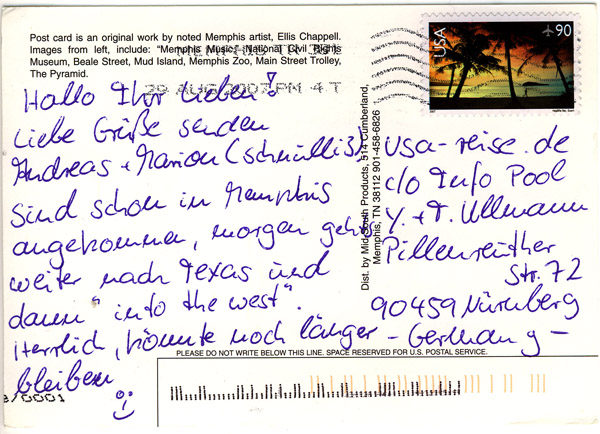 Post card is an original work by noted Memphis artist, Ellis Chappell.
Images from left, include: "Memphis Music, National Civil Rights
Museum, Beale Street, Mud Island, Memphis Zoo, Main Street Trolley,
The Pyramid.
MEMPHIS TN 381
29 AUG 2007 PM 4 T
USA
90
Hallo Ihr Lieben!
Liebe Grüße senden
Andreas + Marion (schnullis)
sind schon in Memphis
angekommen, morgen gehts
weiter nach Texas und
dann "into the west".
Herrlich, könnte noch länger
bleiben
Dist. by Mid-South Products, 514 Cumberland,
Memphis, TN 38112 901-458-6826
usa-reise.de
c/o Info Pool
Y. + T. Ullmann
Pillenreuther
Str. 72
90459 Nürnberg
- Germany -
PLEASE DO NOT WRITE BELOW THIS LINE. SPACE RESERVED FOR U.S. POSTAL SERVICE.